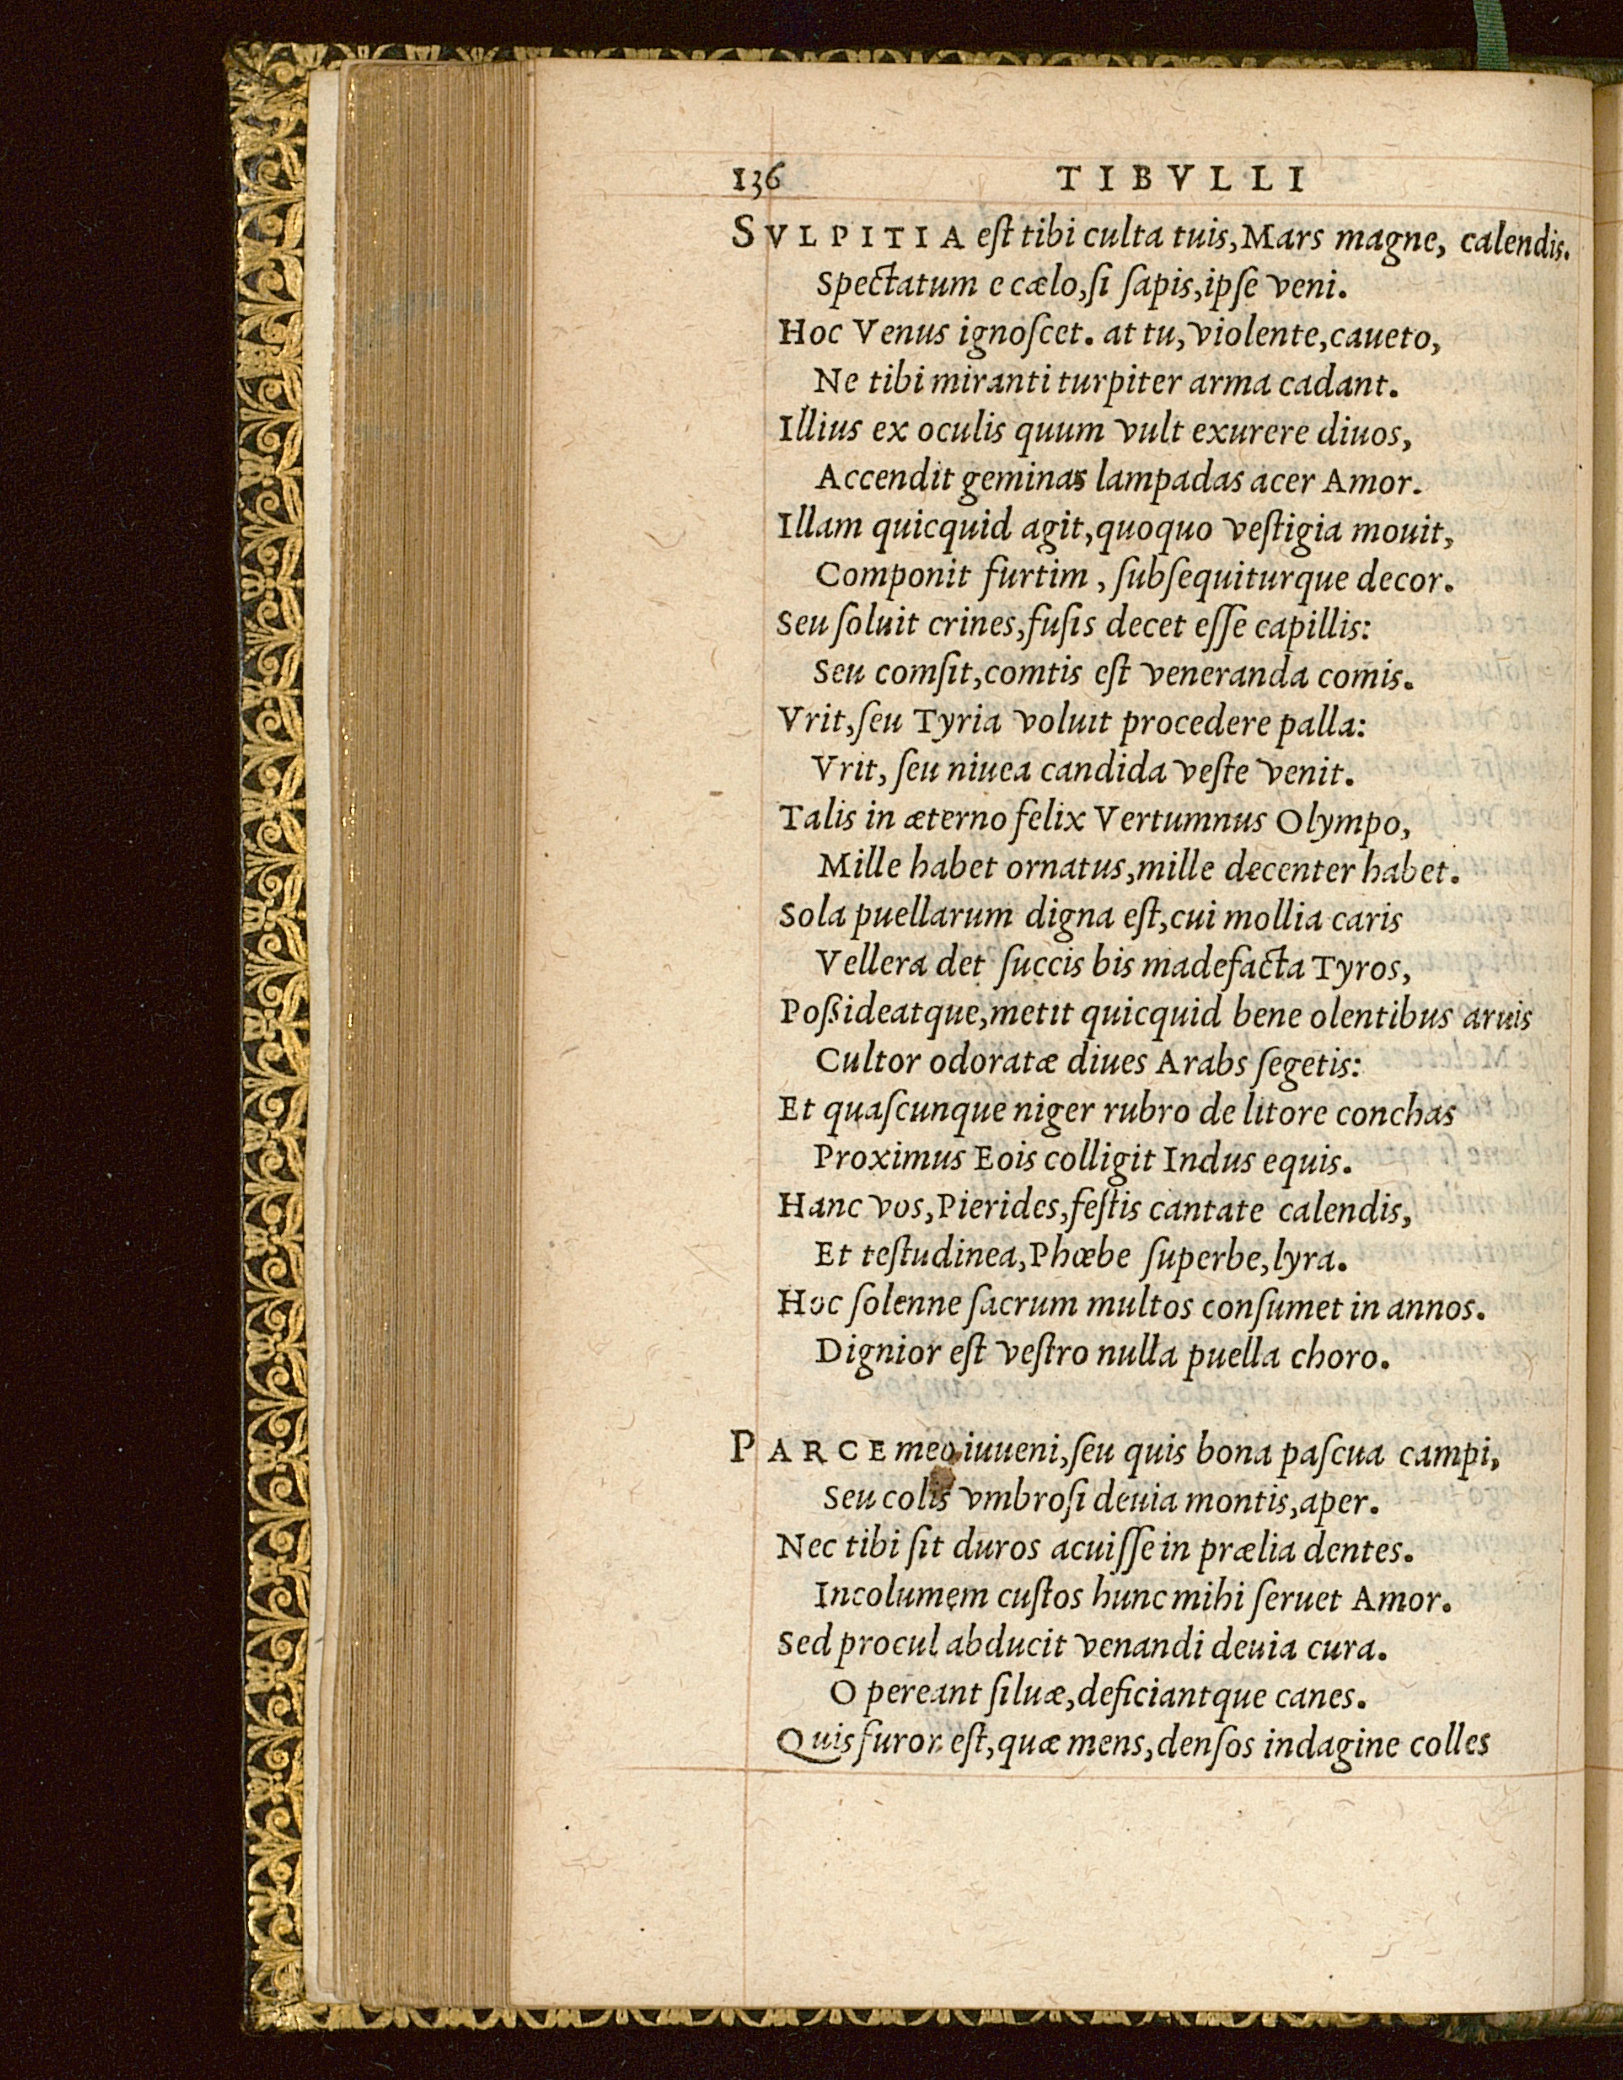 136 TIBVLLI
SVLPITIA eſt tibi culta tuis, Mars magne, calendis.
Spectatum e cælo, ſi ſapis, ipſe veni.
Hoc Venus ignoſcet. at tu, violente, caueto,
Ne tibi miranti turpiter arma cadant.
Illius ex oculis quum vult exurere diuos,
Accendit geminas lampadas acer Amor.
Illam quicquid agit, quoquo veſtigia mouit,
Componit furtim, ſubſequiturque decor.
Seu ſoluit crines, fuſis decet eſſe capillis:
Seu comſit, comtis eſt veneranda comis.
Vrit, ſeu Tyria voluit procedere palla:
Vrit, ſeu niuea candida veſte venit.
Talis in æterno felix Vertumnus Olympo,
Mille habet ornatus, mille decenter habet.
Sola puellarum digna eſt, cui mollia caris
Vellera det ſuccis bis madefacta Tyros,
Poßideatque, metit quicquid bene olentibus aruis
Cultor odoratæ diues Arabs ſegetis:
Et quaſcunque niger rubro de litore conchas
Proximus Eois colligit Indus equis.
Hanc vos, Pierides, feſtis cantate calendis,
Et teſtudinea, Phœbe ſuperbe, lyra.
Hoc ſolenne ſacrum multos conſumet in annos.
Dignior eſt veſtro nulla puella choro.
PARCE meo iuueni, ſeu quis bona paſcua campi,
Seu colis vmbroſi deuia montis, aper.
Nec tibi ſit duros acuiſſe in prælia dentes.
Incolumem cuſtos hunc mihi ſeruet Amor.
Sed procul abducit venandi deuia cura.
O pereant ſiluæ, deficiantque canes.
Quis furor eſt, quæ mens, denſos indagine colles